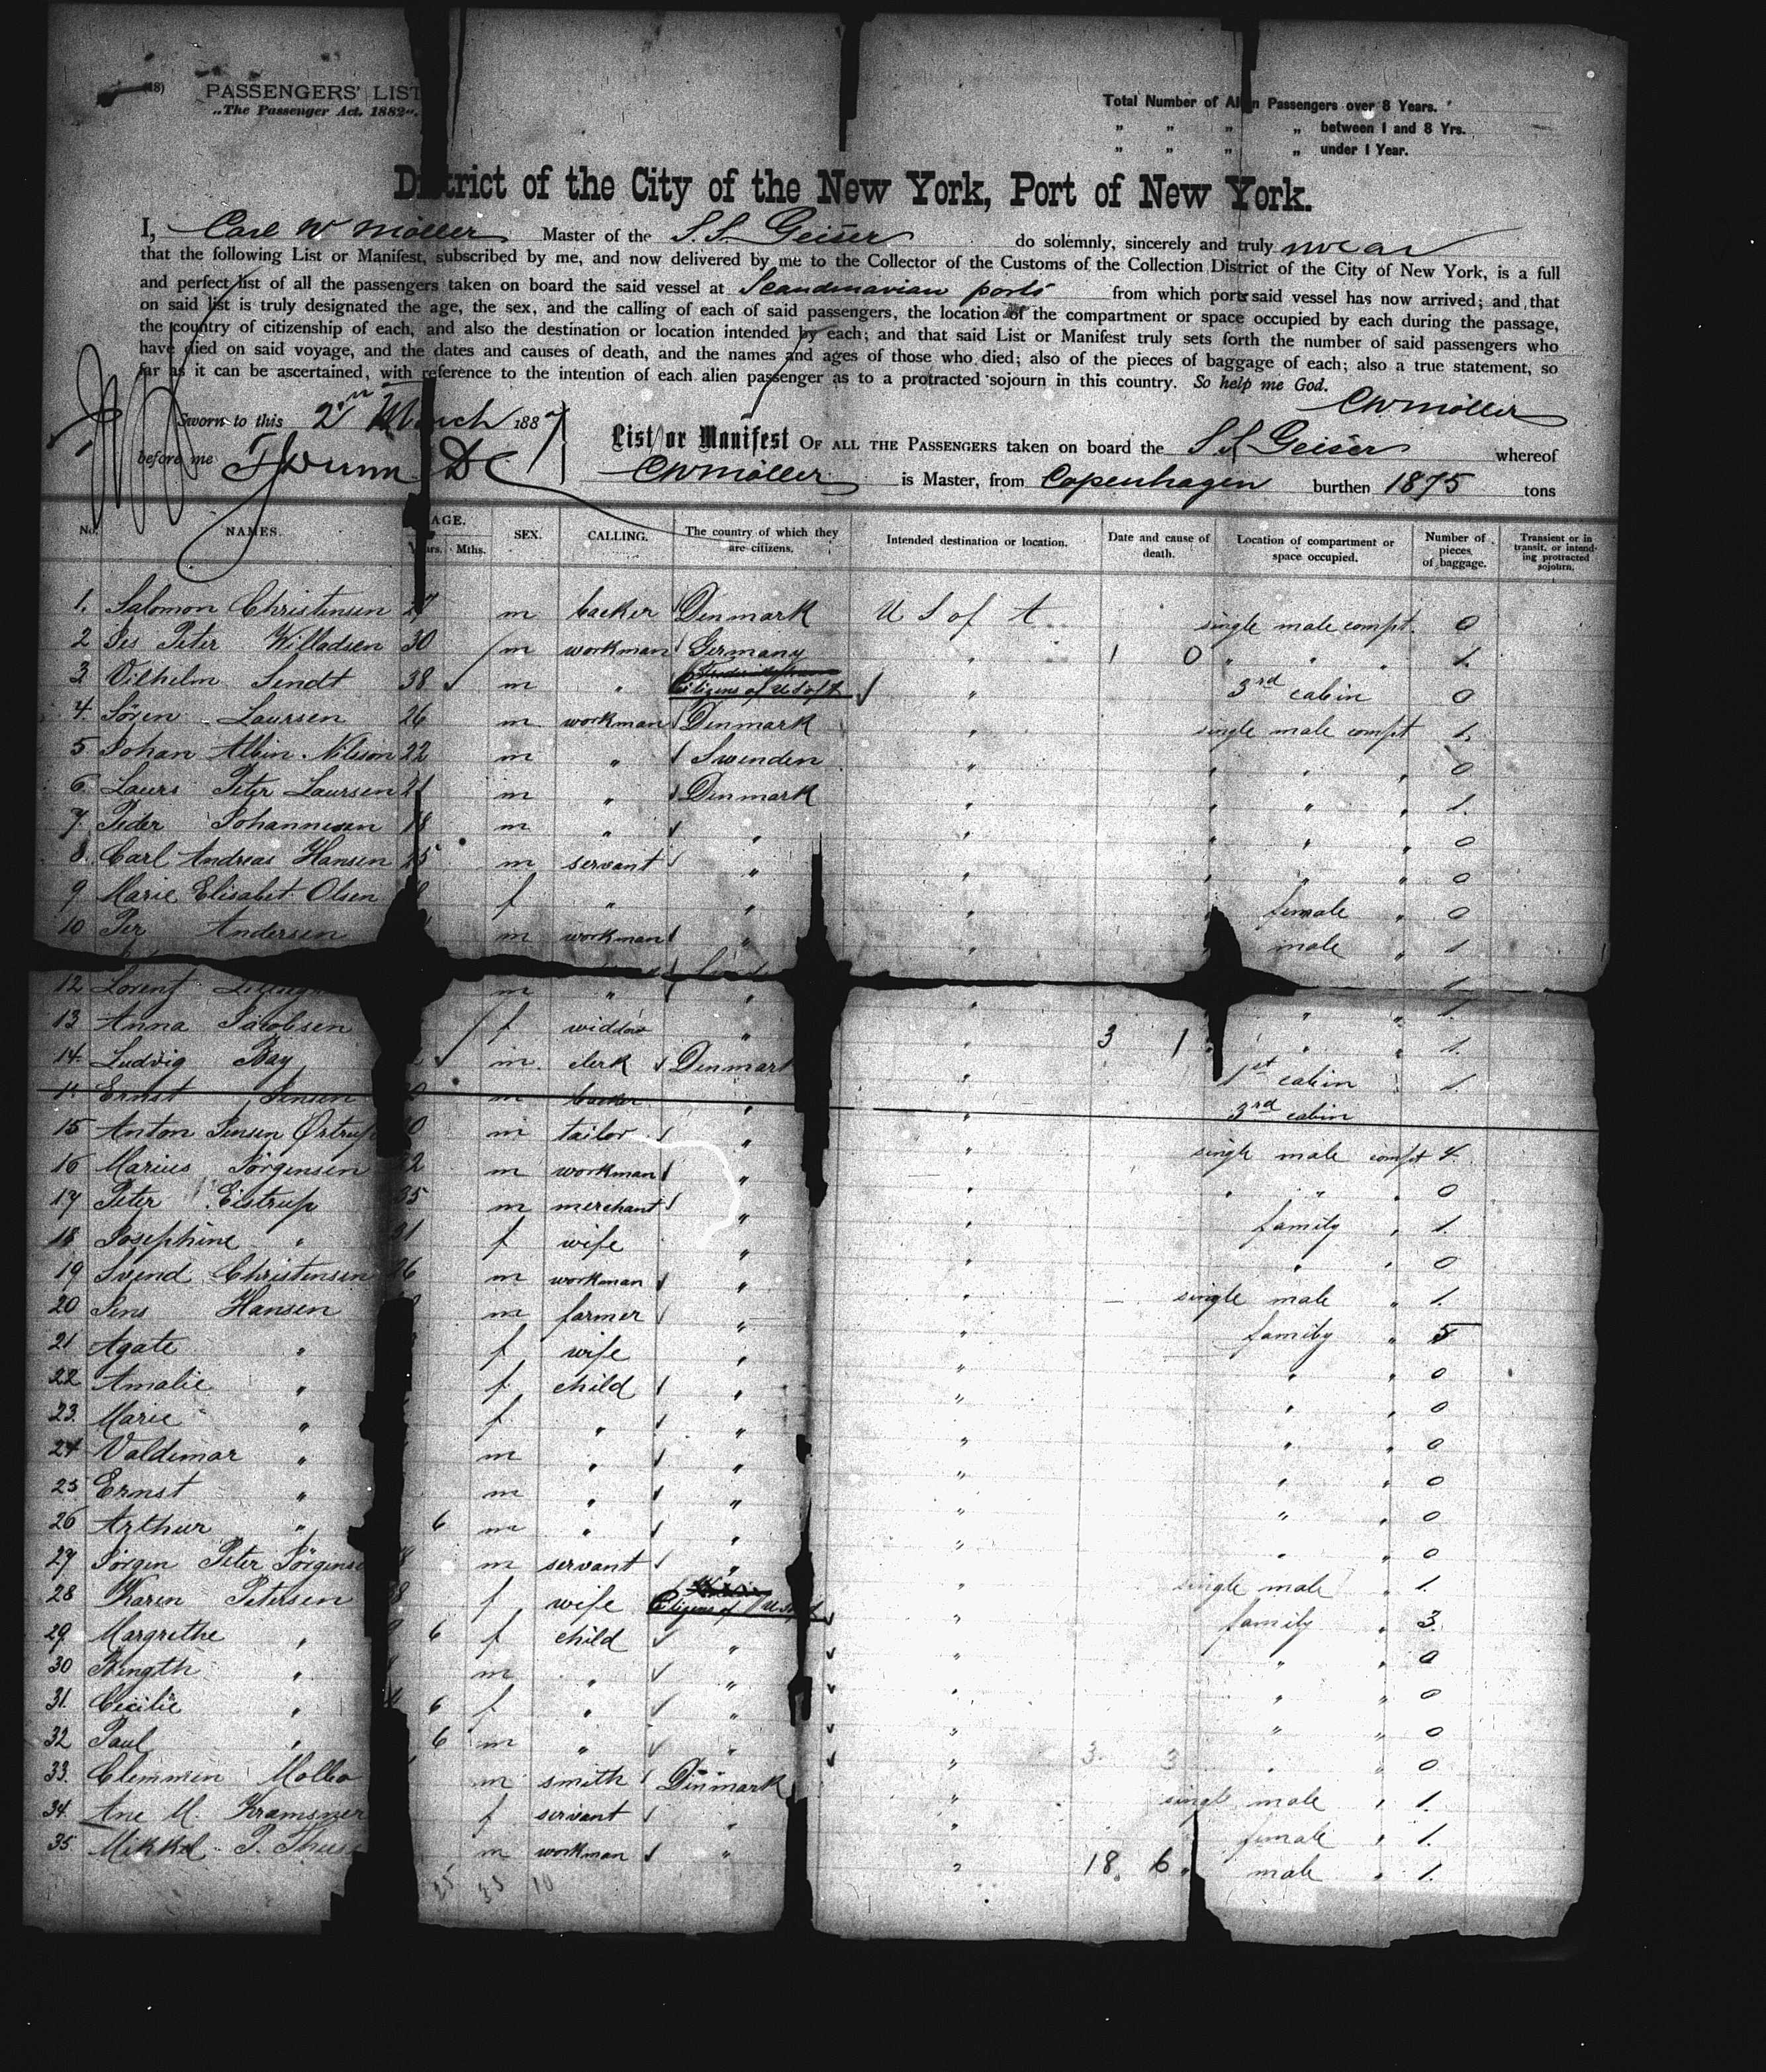 (18) PASSENGERS' LIST
„The Passenger Act. 1882".
Total Number of Alien Passengers over 8 Years.
„ „ „ „ between 1 and 8 Yrs.
„ „ „ „ under 1 Year.
District of the City of the New York, Port of New York.
I, Carl W Möller Master of the S.S. Geiser do solemnly, sincerely and truly swear
that the following List or Manifest, subscribed by me, and now delivered by me to the Collector of the Customs of the Collection District of the City of New York, is a full
and perfect list of all the passengers taken on board the said vessel at Scandinavian ports from which ports said vessel has now arrived; and that
on said list is truly designated the age, the sex, and the calling of each of said passengers, the location of the compartment or space occupied by each during the passage,
the country of citizenship of each, and also the destination or location intended by each; and that said List or Manifest truly sets forth the number of said passengers who
have died on said voyage, and the dates and causes of death, and the names and ages of those who died; also of the pieces of baggage of each; also a true statement, so
far as it can be ascertained, with reference to the intention of each alien passenger as to a protracted sojourn in this country. So help me God.
CWMöller
Sworn to this 2nd March 1887
before me
List or Manifest OF ALL THE PASSENGERS taken on board the S.S. Geiser whereof
CWMöller is Master, from Copenhagen burthen 1875 tons
No. NAMES. AGE. Years. Mths. SEX. CALLING. The country of which they are citizens. Intended destination or location. Date and cause of death. Location of compartment or space occupied. Number of pieces of baggage. Transient or in transit, or intending protracted sojourn.
1. Salomon Christensen 27 m backer Denmark U S of A single male compt. 0
2 Jes Peter Willadsen 30 m workman Germany „ 1 0 „ „ „ 1.
3 Vilhelm Sendt 38 m „ Citizens of U S of A „ 3rd cabin 0
4. Sören Laursen 26 m workman Denmark „ single male compt 1.
5 Johan Albin Nilsson 22 m „ Swenden „ „ „ „ 0
6. Laurs Peter Laursen 21 m „ Denmark „ „ „ „ 1.
7. Peder Johannesen 18 m „ „ „ „ „ „ 0
8. Carl Andreas Hansen 25 m servant „ „ „ „ „ 0
9 Marie Elisabet Olsen f „ „ „ female „ 0
10 Per Andersen m workman „ „ male „ 1
12 Lorenz m „ „ „ „ „ 1.
13 Anna Jacobsen f widdow „ „ 3 1 „ „ „ 1.
14. Ludvig Bay m. clerk Denmark „ 1st cabin 1
Ernst Jensen m backer „ „ 3rd cabin
15 Anton Jensen Örtrup m tailor „ „ single male compt 4.
16 Marius Jörgensen 22 m workman „ „ „ „ „ 0
17 Peter Eistrup 35 m merchant „ „ family „ 1.
18 Josephine „ 31 f wife „ „ „ „ 0
19 Svend Christensen 26 m workman „ „ single male „ 1.
20 Jens Hansen m farmer „ „ family „ 5
21 Agate „ f wife „ „ „ „ 0
22 Amalie „ f child „ „ „ „ 0
23. Marie „ f „ „ „ „ „ 0
24 Valdemar „ m „ „ „ „ „ 0
25 Ernst „ m „ „ „ „ „ 0
26 Arthur „ 6 m „ „ „ „ „ 0
27 Jörgen Peter Jörgense m servant „ „ single male „ 1.
28 Karen Petersen 38 f wife Citizens of U S of A „ family „ 3.
29. Margrethe „ 6 f child „ „ „ „ 0
30 Bength „ m „ „ „ „ „ 0
31. Cecilie „ 6 f „ „ „ „ „ 0
32 Paul „ 6 m „ „ „ 3 3 „ „ 0
33. Clemmen Molbo m smith Denmark „ single male „ 1.
34. Ane M. Kramsner f servant „ „ female „ 1.
35. Mikkel P. Thus m workman „ „ 18. 6 „ male „ 1.
25 35 10